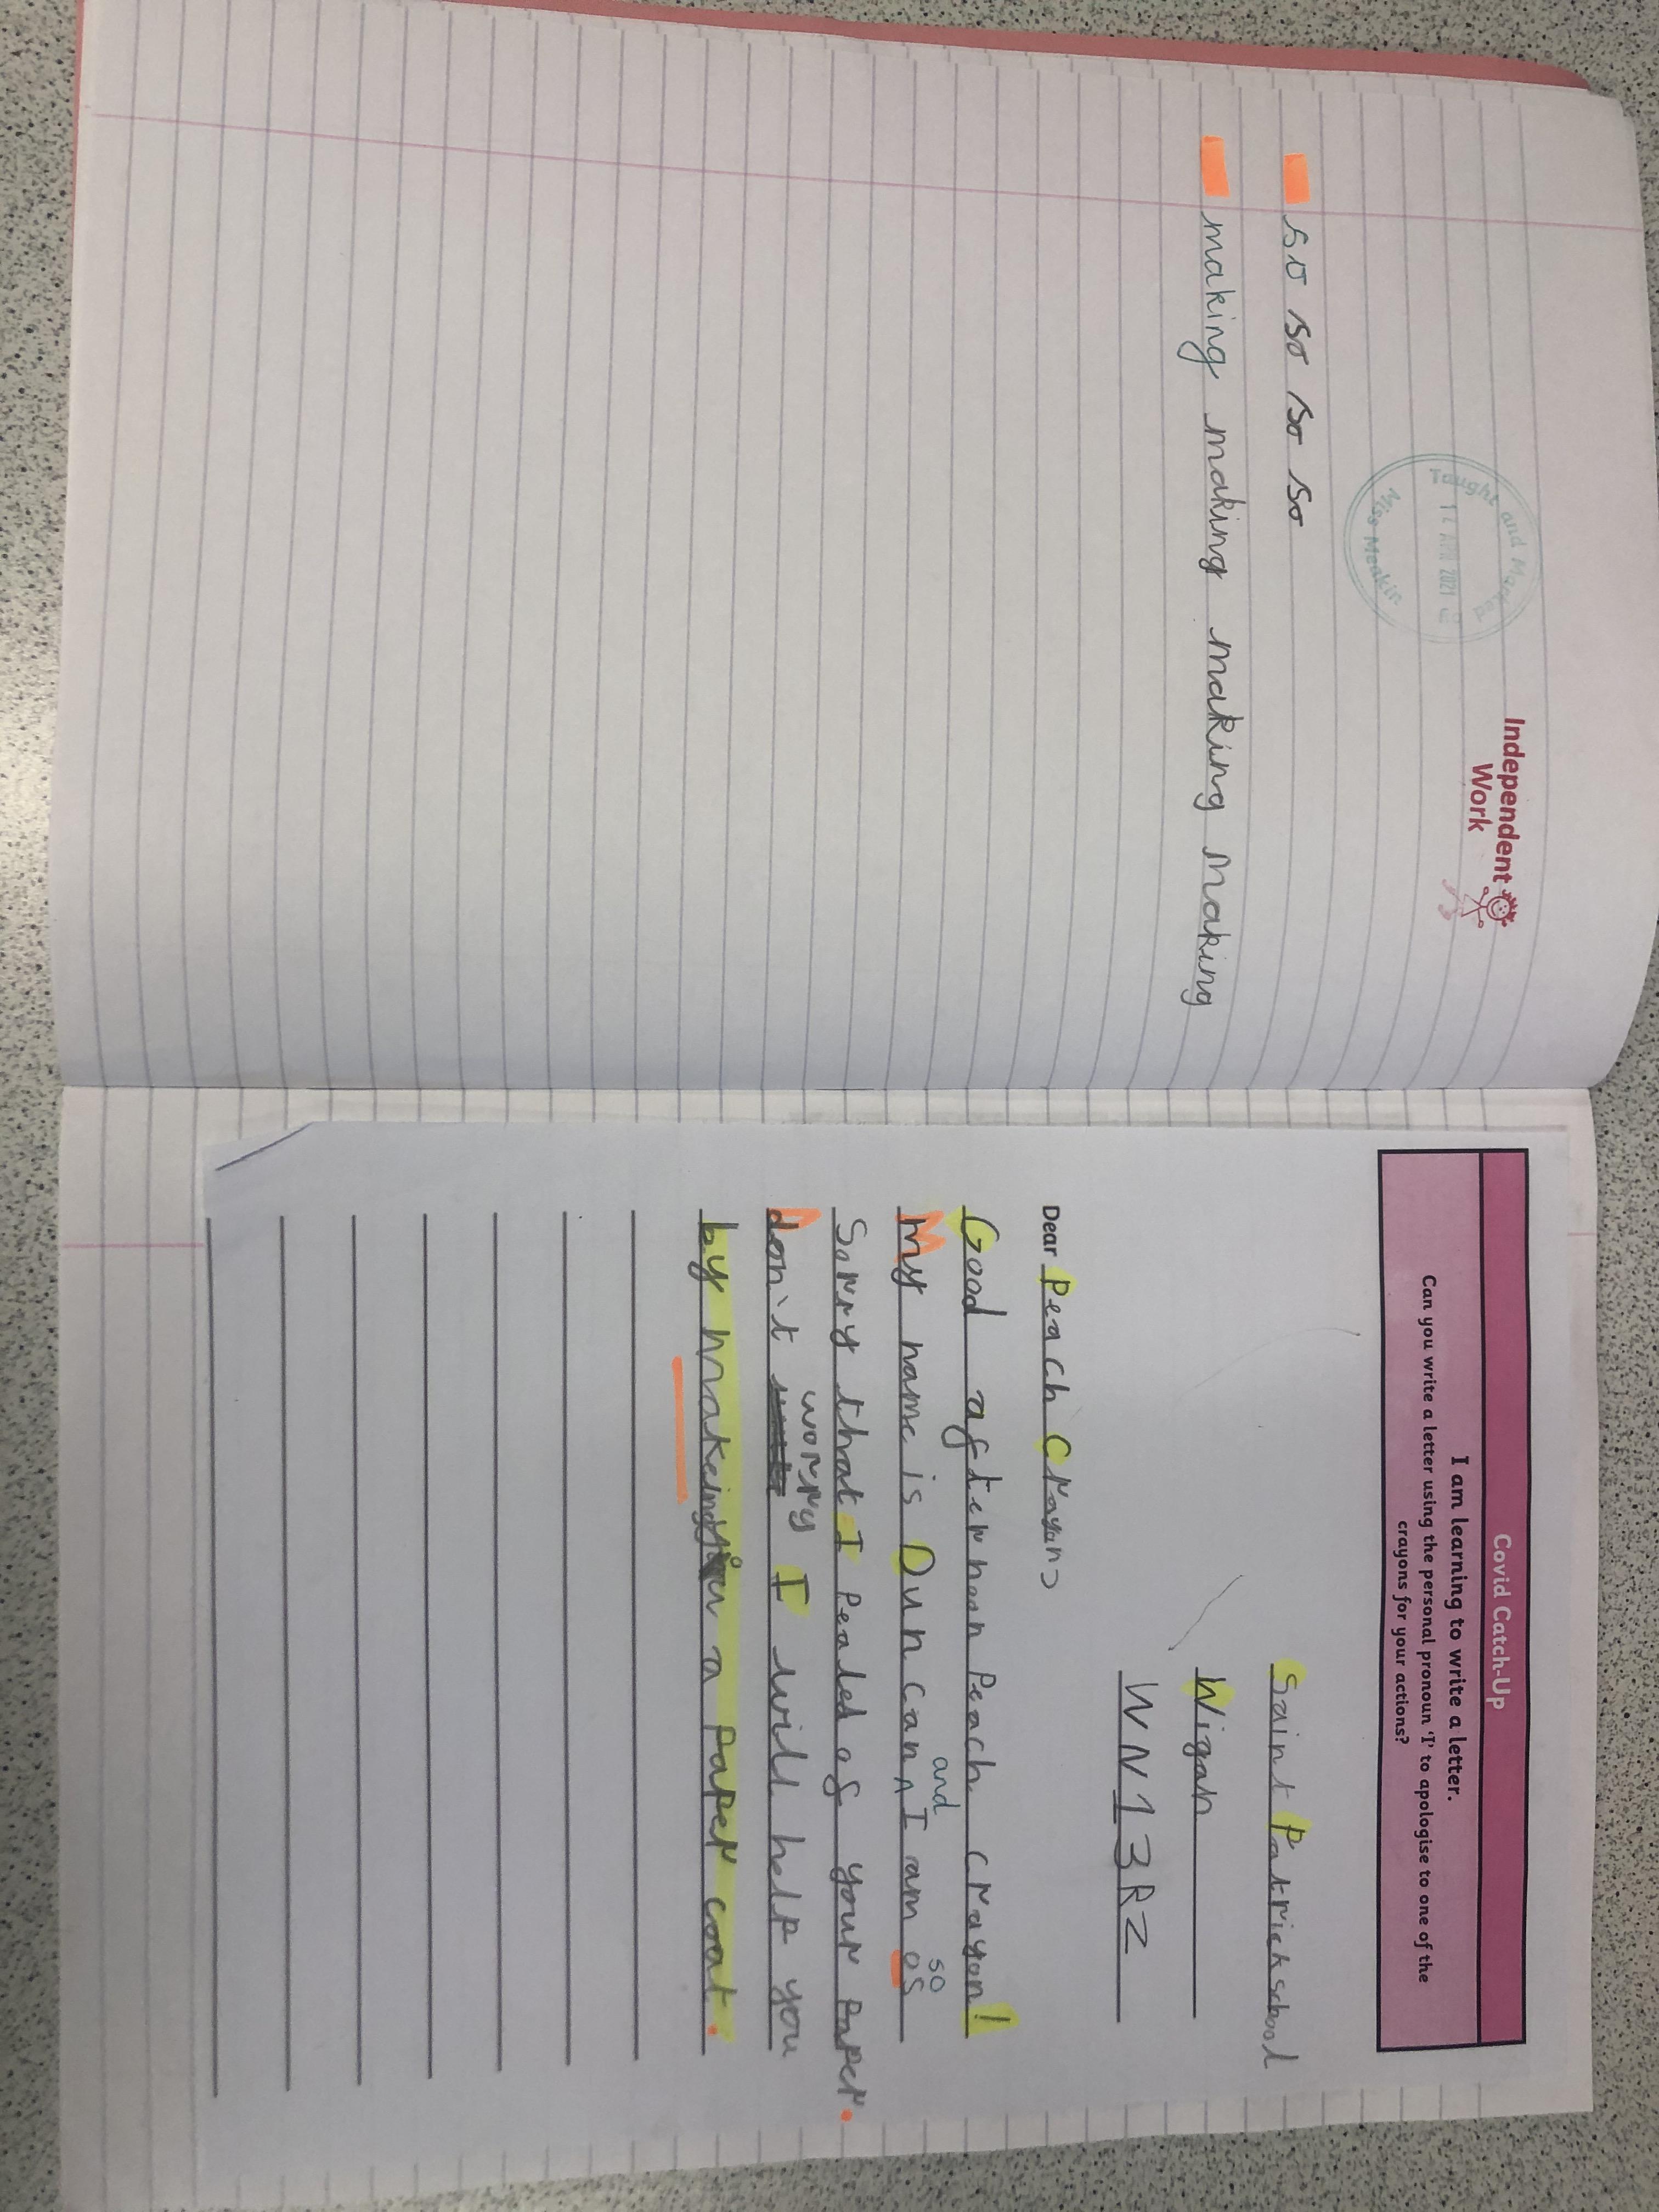 Independent
Work
Taught and Marked
APR 2021
Miss Meakin
so so so so
making making making making
Covid Catch-Up
I am learning to write a letter.
Can you write a letter using the personal pronoun 'I' to apologise to one of the
crayons for your actions?
Saint Patrick school
Wigan
WN1 3RZ
Dear Peach Crayon
Good afternoon Peach crayon!
and so
My name is Duncan ^ I am os
Sorry that I Pealed of your Paper.
worry
don't I will help you
by makeing you a Paper coat.